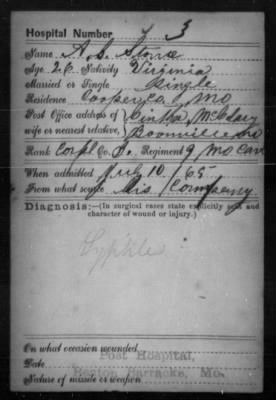 Hospital Number 3
Name A. S. Stone
Age 26 Nativity Virginia
Married or Single Single
Residence Cooper Co. Mo
Post Office address of
wife or nearest relative, Boonville Mo
Rank Corpl Co. Regiment 9 Mo Cav
When admitted July 10 /65
From what source His Company
Diagnosis:—(In surgical cases state explicitly seat and
character of wound or injury.)
On what occasion wounded
Post Hospital,
Date
Benton Barracks, Mo.
Nature of missile or weapon